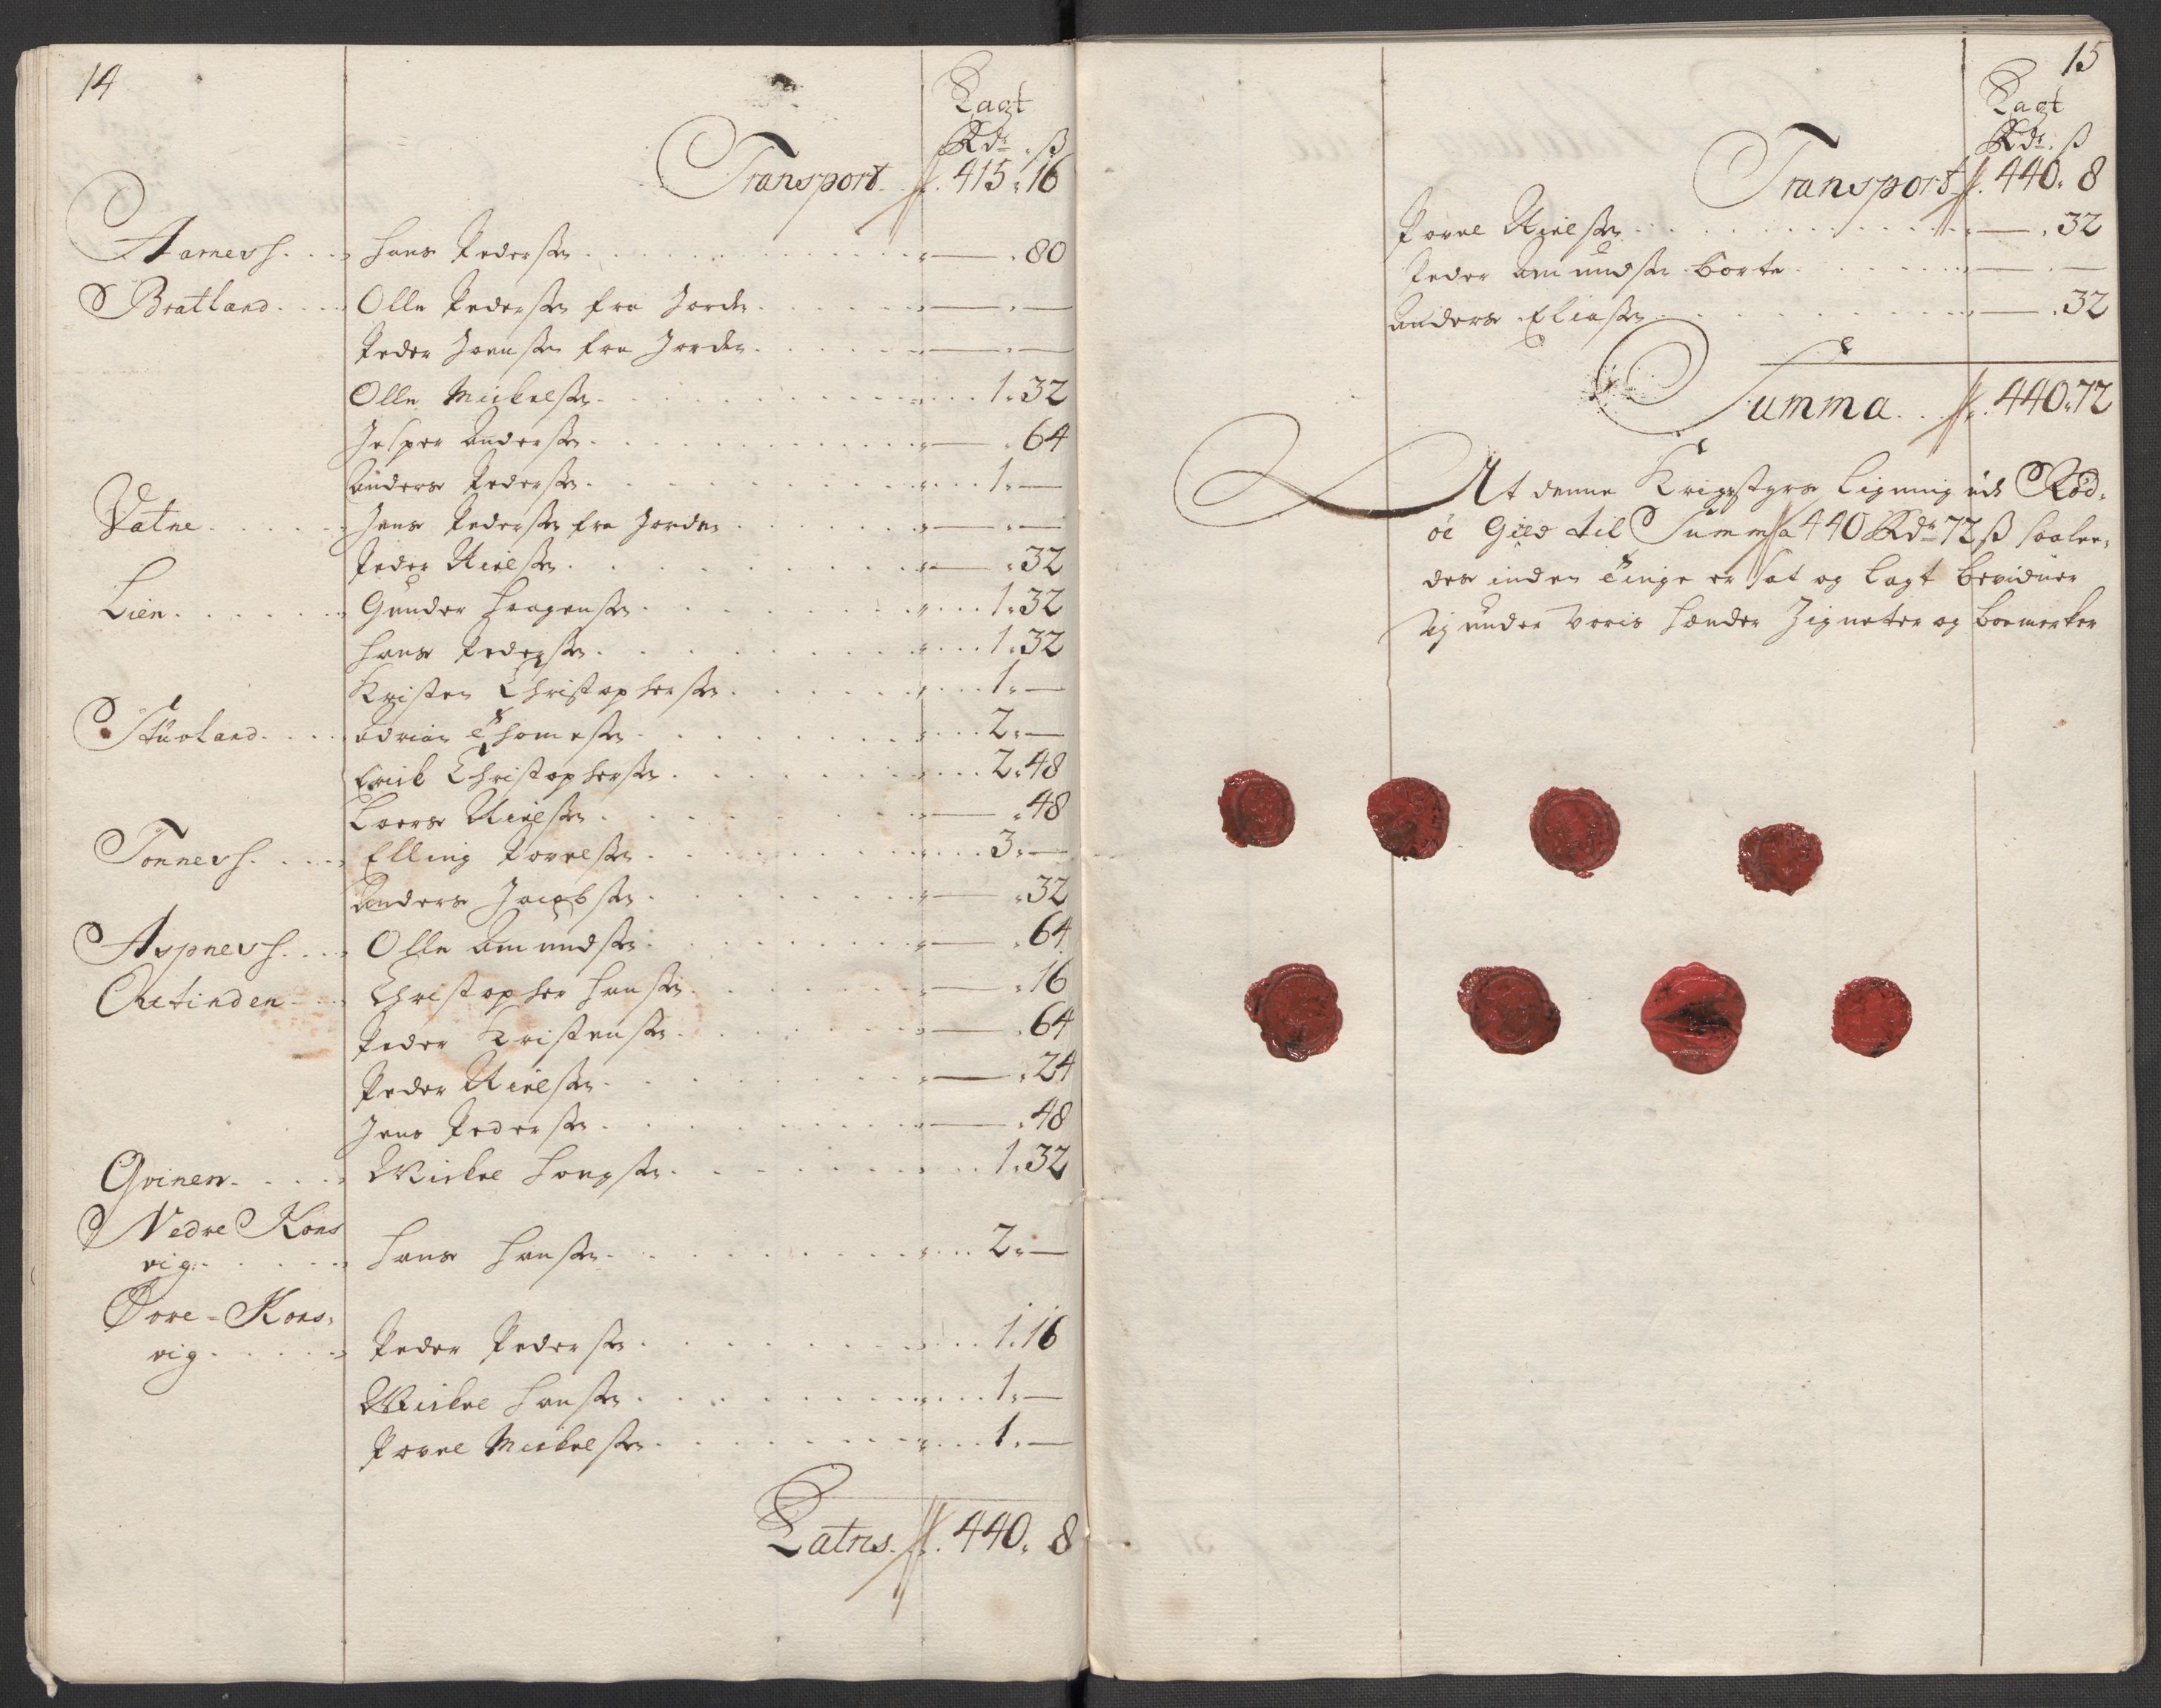 14
Lagt
Rdr. ß
Transport. 415. 16
Aarnesh. Hans Pedersen . 80
Bratland. Olle Pedersen fra Jorden — . —
Peder Joensen fra Jorden. — . —
Olle Mickelsen. 1. 32
Jesper Andersen. . 64
Anders Pedersen. 1. —
Vatne. Jens Pedersen fra Jorden — . —
Peder Nielsen. . 32
Lien. Gunder Haagensen. 1. 32
Hans Pedersen. 1. 32
Kristen Christophersen. 1. —
Stuvland. Adrian Thomesen. 2. —
Erick Christophersen. 2. 48
Laers Nielsen. . 48
Tonnesh. Elling Povelsen. 3. —
Anders Jacobsen. . 32
Aspnesh. Olle Amundsen. . 64
Christopher Hansen. . 16
Peder Kristensen. . 64
Peder Nielsen. . 24
Jens Pedersen. . 48
Qvinen. Mickel Hansen. 1. 32
Nedre Kons
vig. Hans Hansen. 2. —
Øvre-Kons-
vig. Peder Pedersen. 1. 16
Mickel Hansen. 1. —
Povel Mickelsen. 1. —
Latris. 440. 8
15
Lagt
Rdr. ß
Transport 440. 8
Povel Nielsen . 32
Peder Amundsen borte. — . —
Anders Eliasen . 32
Summa. 440. 72
At denne Krigsstyrs Ligning udi Rød-
øe Gield til Summa 440 Rdr 72 ß saale-
des inden Tinge er sat og lagt bevidner
vj under voris Hænder Zigneter og boemerker